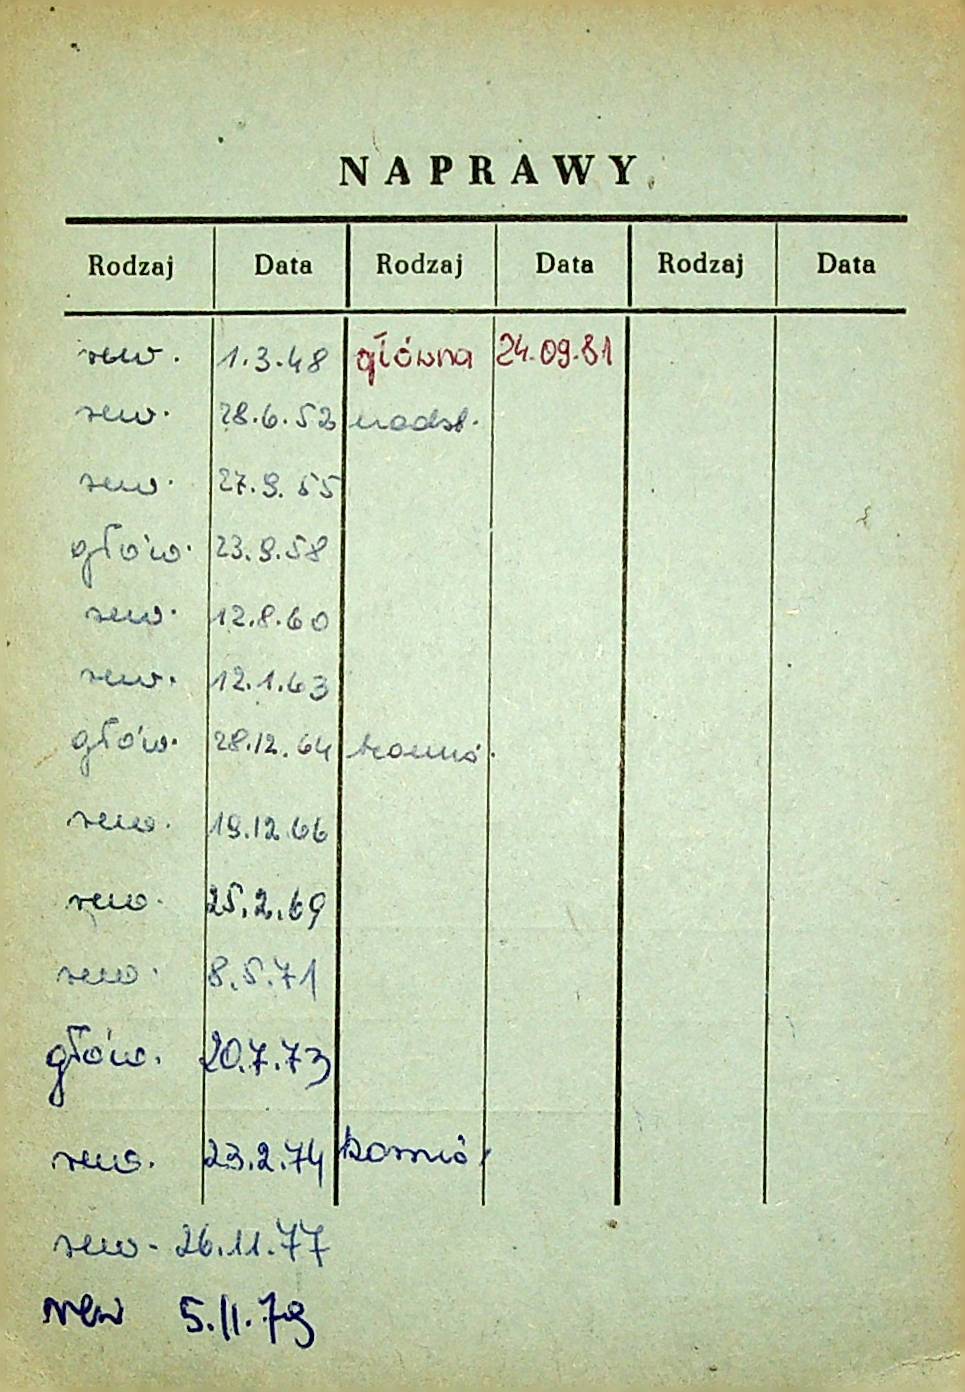 NAPRAWY
Rodzaj Data Rodzaj Data Rodzaj Data
rew. 1.3.48 główna 24.09.81
rew. 28.6.52 nadsł.
rew. 27.9.55
głów. 23.9.58
rew. 12.8.60
rew. 12.1.63
głów. 28.12.64
rew. 19.12.66
rew. 25.2.69
rew. 8.5.71
głów. 20.7.73
rew. 23.2.74
rew - 26.11.77
rew 5.11.79